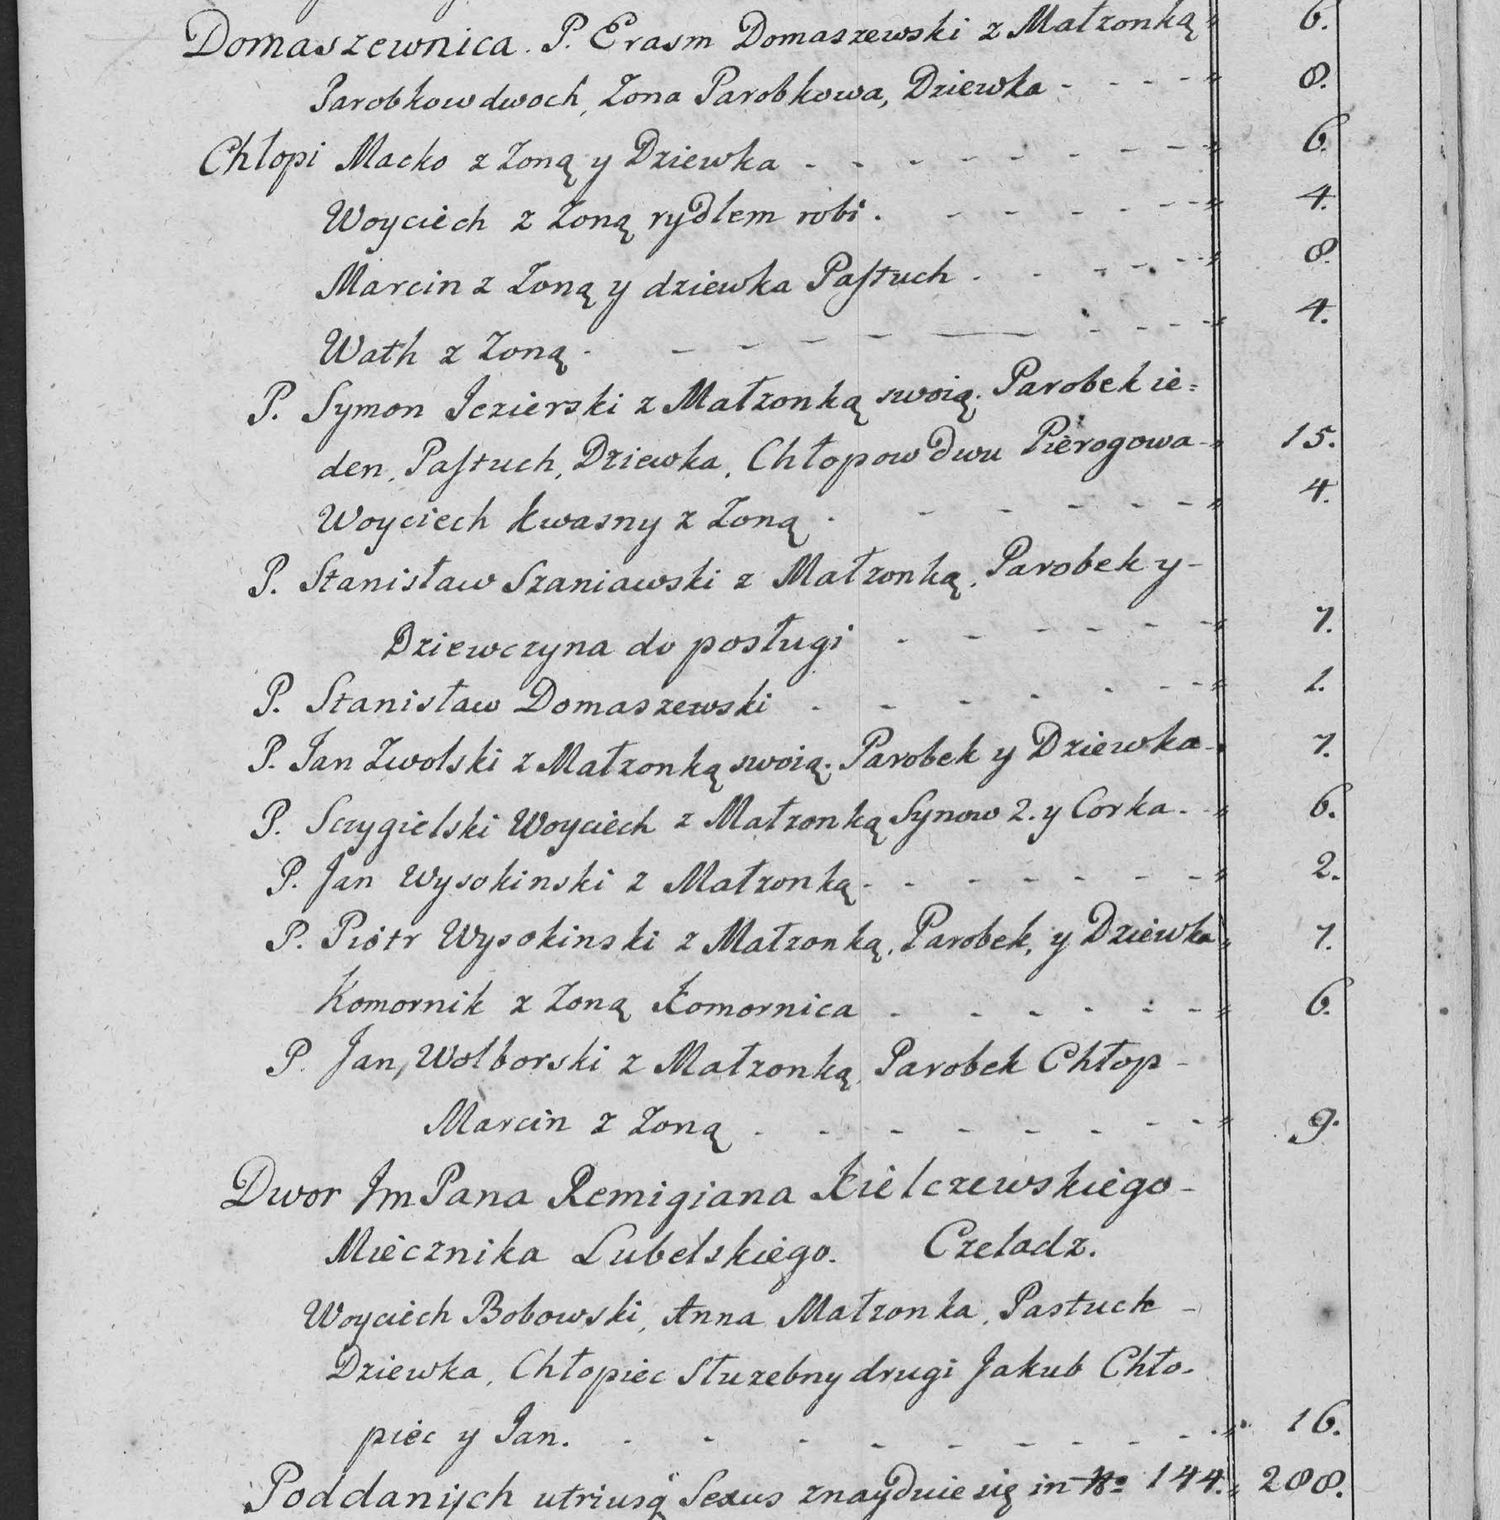 Domaszewnica. P. Erasm Domaszewski z Małzonką " 6.
Parobkow dwoch, Zona Parobkowa, Dziewka - - - - " 8.
Chłopi Macko z Zoną y Dziewka - - - - - - - - " 6.
Woyciech z Zoną rydlem robi. - - - - - " 4.
Marcin z Zoną y dziewka Paſtuch. - - - - - " 8.
Wath z Zoną. - - - - - - - - - " 4.
P. Symon Jezierski z Małzonką swoią. Parobek ie=
den, Paſtuch, Dziewka, Chłopow dwu Pierogowa - " 15.
Woyciech Kwasny z Zoną. - - - - - - " 4.
P. Stanisław Szaniawski z Małzonką. Parobek y -
Dziewczyna do posługi - - - - - - " 7.
P. Stanisław Domaszewski - - - - - - - " 1.
P. Jan Zwolski z Małzonką swoią. Parobek y Dziewka - " 7.
P. Sczygielski Woyciech z Małzonką Synow 2. y Corka. - " 6.
P. Jan Wysokinski z Małzonką - - - - - - - " 2.
P. Piotr Wysokinski z Małzonką, Parobek, y Dziewka " 7.
Komornik z Zoną Komornica - - - - - - - " 6.
P. Jan, Wolborski z Małzonką, Parobek Chłop -
Marcin z Zoną - - - - - - - - " 9.
Dwor Jm Pana Remigiana Kielczewskiego -
Miecznika Lubelskiego. Czeladz.
Woyciech Bobowski, Anna Małzonka, Pastuch -
Dziewka, Chłopiec Słuzebny drugi Jakub Chło-
piec y Jan. - - - - - - - - - " 16.
Poddanych utriusq Sexus znayduie się in No 144. " 288.